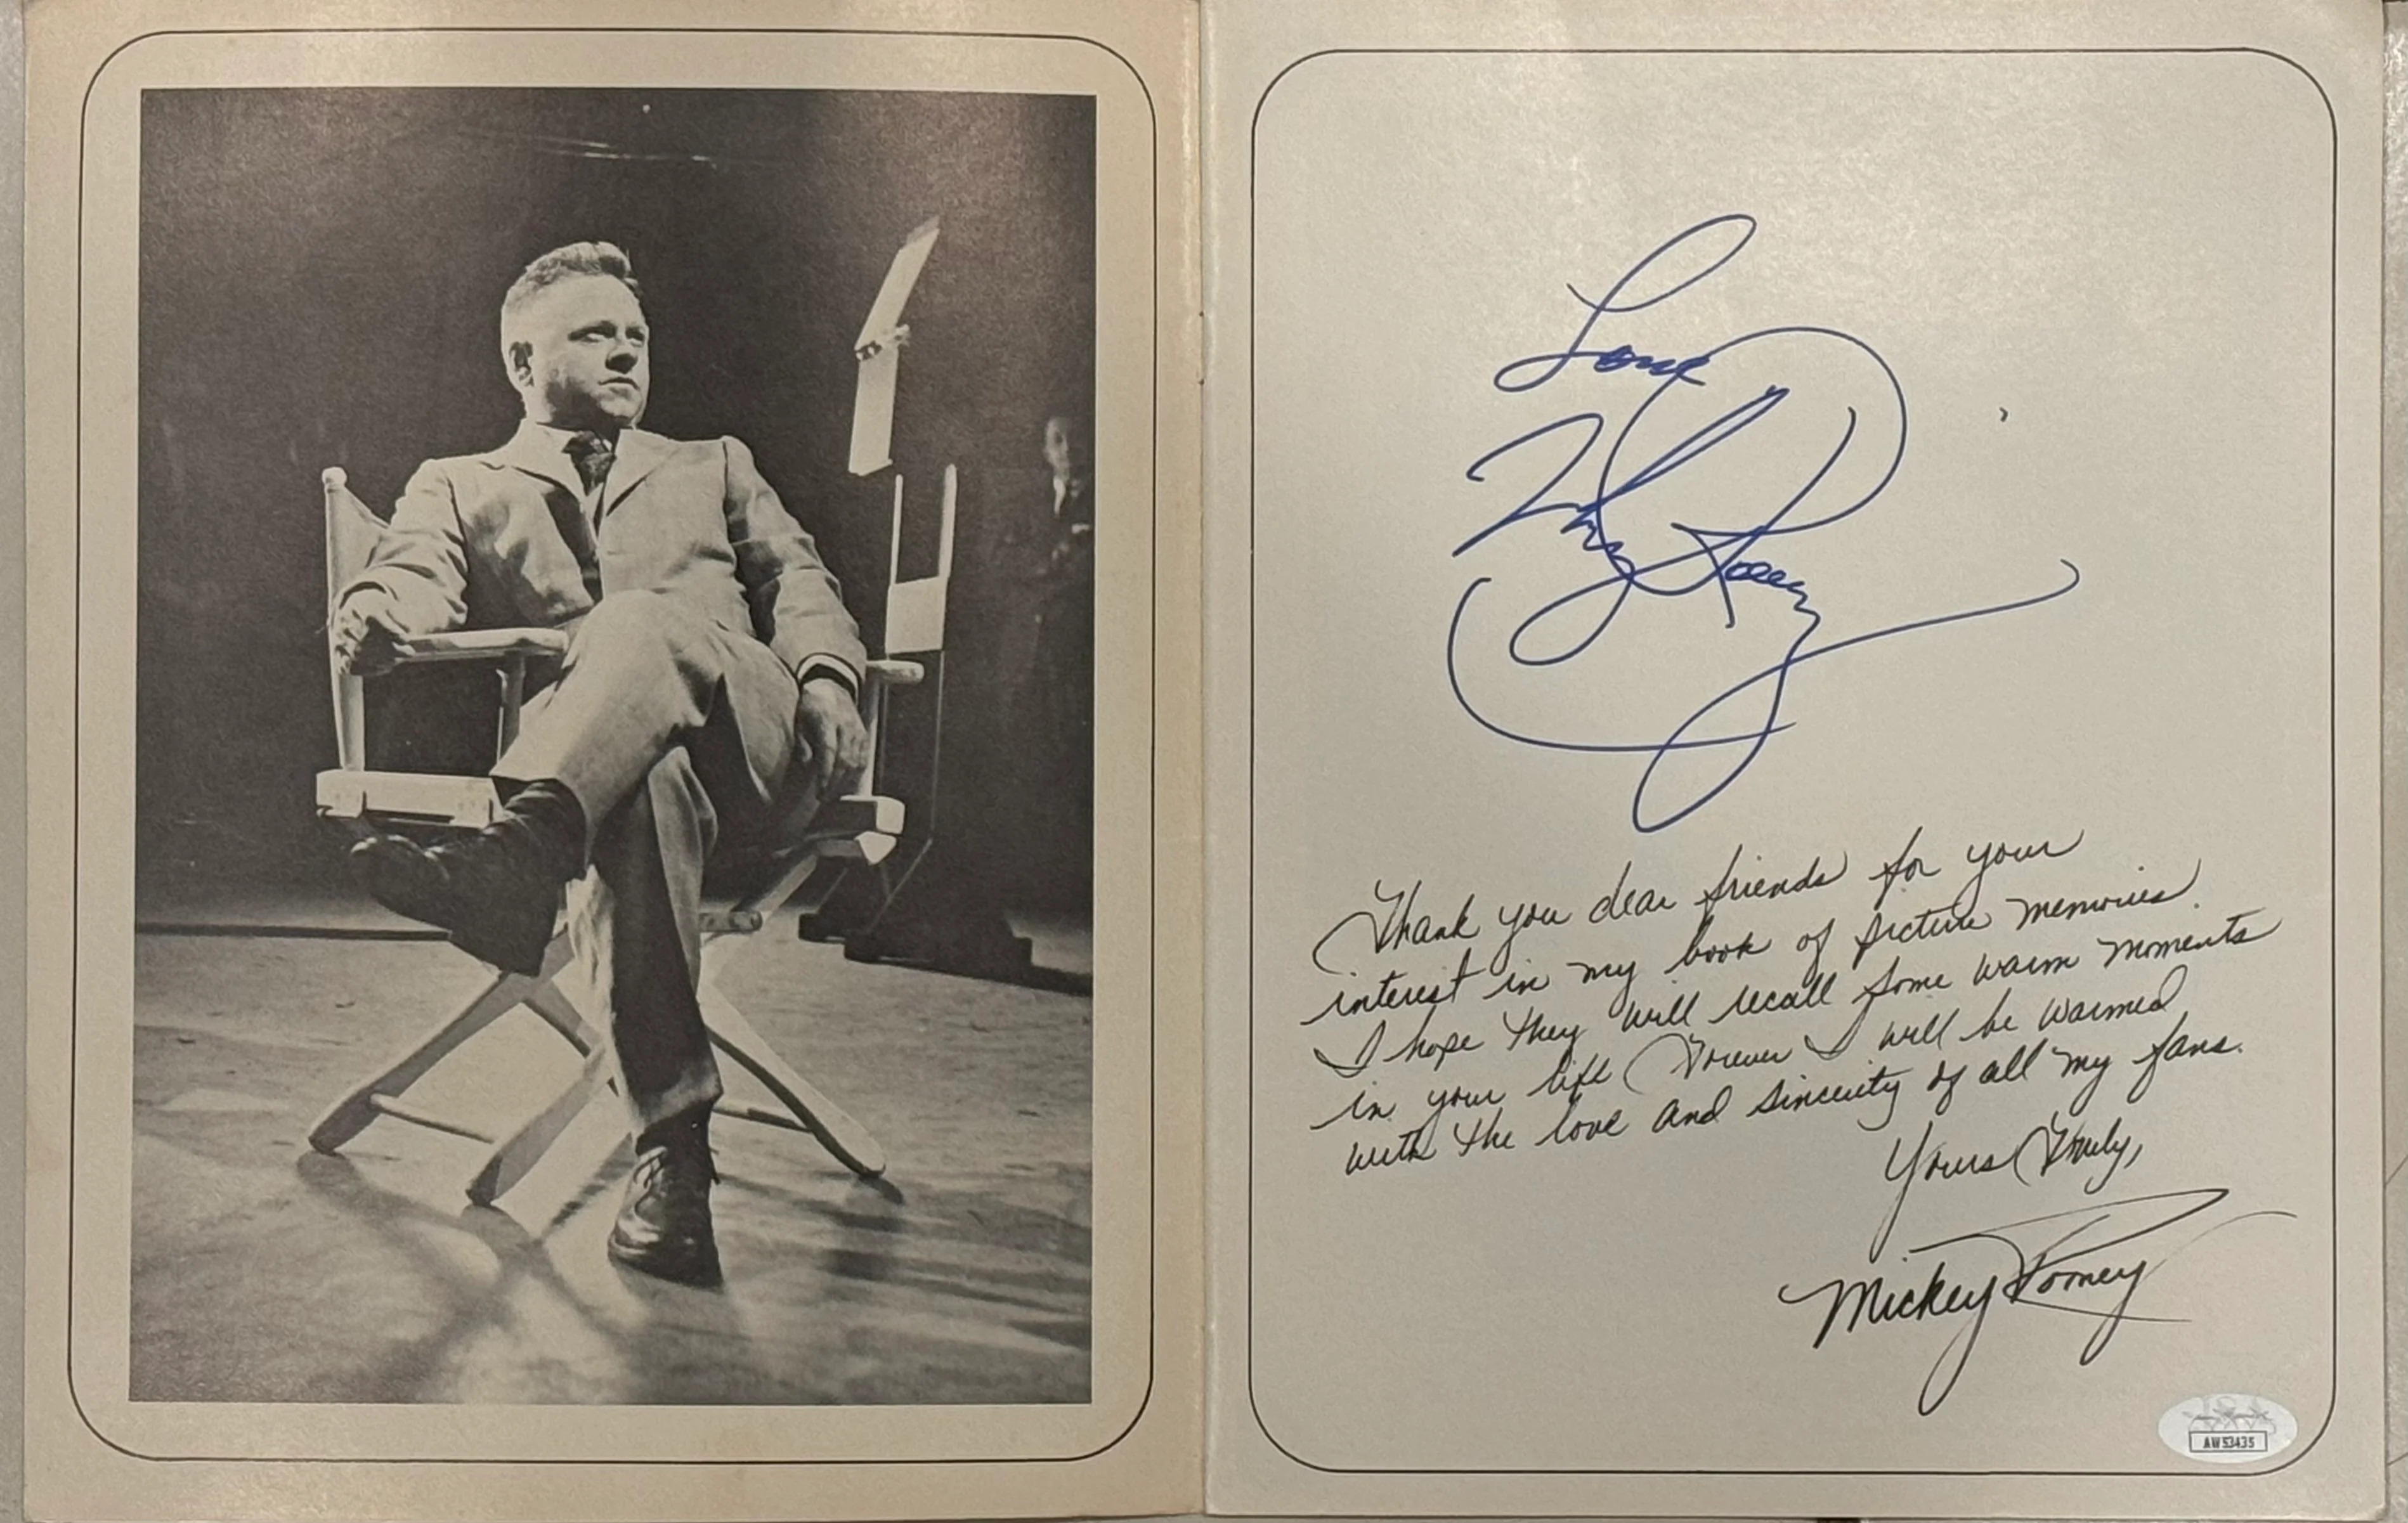 Love
Mickey Rooney
Thank you dear friends for your
interest in my book of picture memories.
I hope they will recall some warm moments
in your life Forever I will be warmed
with the love and sincerity of all my fans.
Yours Truly,
Mickey Rooney
JSA
AW53435